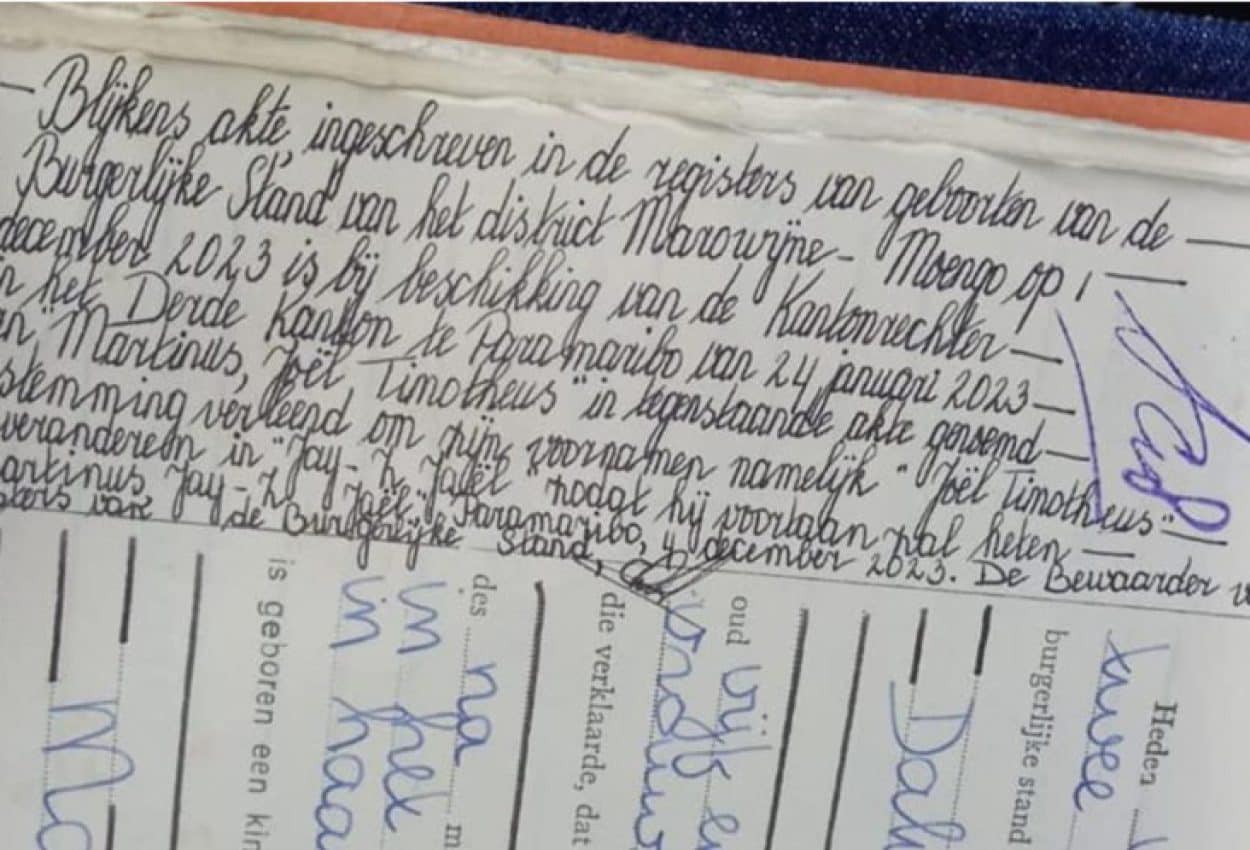 — Blijkens akte, ingeschreven in de registers van geboorten van de —
Burgerlijke Stand van het district Marowijne - Moengo op 1 —
december 2023 is bij beschikking van de Kantonrechter —
n het Derde Kanton te Paramaribo van 24 januari 2023 —
an "Martinus, Joël Timotheus" in tegenstaande akte genoemd —
stemming verleend om zijn voornamen namelijk "Joël Timotheus"
veranderen in "Jay-Z Jaël" zodat hij voortaan zal heten —
artinus Jay-Z Jaël" Paramaribo, 4 december 2023. De Bewaarder v
sters van de Burgerlijke Stand,
Heden
twee
burgerlijke stand
Dah
oud vijf en
die verklaarde, dat
des na m
in het
in haa
is geboren een kin
Ma